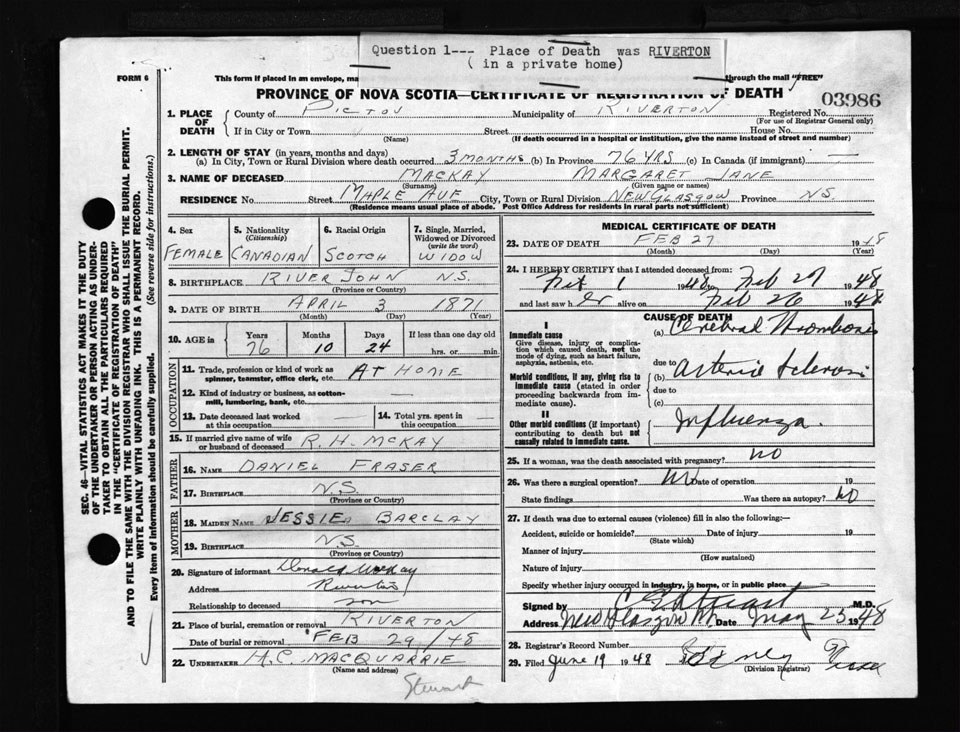 Question 1--- Place of Death was RIVERTON
( in a private home)
FORM 6
This form if placed in an envelope, ma
through the mail "FREE"
PROVINCE OF NOVA SCOTIA—CERTIFICATE OF REGISTRATION OF DEATH
03986
1. PLACE OF DEATH
County of PICTOU Municipality of RIVERTON Registered No.
(For use of Registrar General only)
If in City or Town Street House No.
(Name) (If death occurred in a hospital or institution, give the name instead of street and number)
2. LENGTH OF STAY (in years, months and days)
(a) In City, Town or Rural Division where death occurred 3 MONTHS (b) In Province 76 YRS (c) In Canada (if immigrant) —
3. NAME OF DECEASED MACKAY MARGARET JANE
(Surname) (Given name or names)
RESIDENCE No. Street MAPLE AVE City, Town or Rural Division NEW GLASGOW Province N.S.
(Residence means usual place of abode. Post Office Address for residents in rural parts not sufficient)
4. Sex FEMALE
5. Nationality (Citizenship) CANADIAN
6. Racial Origin SCOTCH
7. Single, Married, Widowed or Divorced (write the word) WIDOW
8. BIRTHPLACE RIVER JOHN N.S.
(Province or Country)
9. DATE OF BIRTH APRIL 3 1871
(Month) (Day) (Year)
10. AGE in Years 76 Months 10 Days 24 If less than one day old
hrs. or min.
OCCUPATION
11. Trade, profession or kind of work as spinner, teamster, office clerk, etc. AT HOME
12. Kind of industry or business, as cotton-mill, lumbering, bank, etc.
13. Date deceased last worked at this occupation
14. Total yrs. spent in this occupation
15. If married give name of wife or husband of deceased R.H. MCKAY
FATHER
16. NAME DANIEL FRASER
17. BIRTHPLACE N.S.
(Province or Country)
MOTHER
18. MAIDEN NAME JESSIE BARCLAY
19. BIRTHPLACE N.S.
(Province or Country)
20. Signature of informant Donald McKay
Address Riverton
Relationship to deceased son
21. Place of burial, cremation or removal RIVERTON
Date of burial or removal FEB 29/48
22. UNDERTAKER H.C. MACQUARRIE
(Name and address)
Stewart
MEDICAL CERTIFICATE OF DEATH
23. DATE OF DEATH FEB 27 1948
(Month) (Day) (Year)
24. I HEREBY CERTIFY that I attended deceased from:
Feb 1 1948, Feb 27 1948
and last saw her alive on Feb 26 1948
CAUSE OF DEATH
I
Immediate cause
Give disease, injury or complication which caused death, not the mode of dying, such as heart failure, asphyxia, asthenia, etc.
(a) Cerebral Thrombosis
due to
Morbid conditions, if any, giving rise to immediate cause (stated in order proceeding backwards from immediate cause).
(b) Arterio Sclerosis
due to
(c)
II
Other morbid conditions (if important) contributing to death but not causally related to immediate cause.
Influenza.
25. If a woman, was the death associated with pregnancy? NO
26. Was there a surgical operation? NO Date of operation 19
State findings Was there an autopsy? NO
27. If death was due to external causes (violence) fill in also the following:—
Accident, suicide or homicide? Date of injury 19
(State which)
Manner of injury
(How sustained)
Nature of injury
Specify whether injury occurred in industry, in home, or in public place
Signed by M.D.
Address New Glasgow Date May 25 1948
28. Registrar's Record Number
29. Filed June 19 1948
(Division Registrar)
SEC. 46—VITAL STATISTICS ACT MAKES IT THE DUTY
OF THE UNDERTAKER OR PERSON ACTING AS UNDER-
TAKER TO OBTAIN ALL THE PARTICULARS REQUIRED
IN THE "CERTIFICATE OF REGISTRATION OF DEATH"
AND TO FILE THE SAME WITH THE DIVISION REGISTRAR WHO SHALL ISSUE THE BURIAL PERMIT.
WRITE PLAINLY WITH UNFADING INK. THIS IS A PERMANENT RECORD.
Every item of information should be carefully supplied. (See reverse side for instructions.)